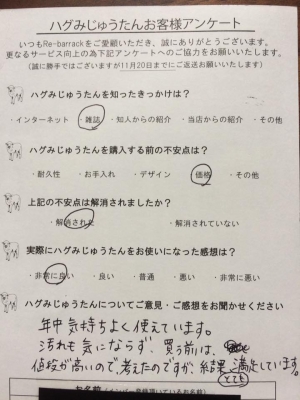 ハグみじゅうたんお客様アンケート
いつもRe-barrackをご愛顧いただき、誠にありがとうございます。
更なるサービス向上の為下記アンケートへのご協力をお願いいたします。
(誠に勝手ではございますが11月20日までにご返送お願いいたします)
ハグみじゅうたんを知ったきっかけは？
・インターネット ・雑誌 ・知人からの紹介 ・当店からの紹介 ・その他
ハグみじゅうたんを購入する前の不安点は？
・耐久性 ・お手入れ ・デザイン ・価格 ・その他
上記の不安点は解消されましたか？
・解消された ・解消されていない
実際にハグみじゅうたんをお使いになった感想は？
・非常に良い ・良い ・普通 ・悪い ・非常に悪い
ハグみじゅうたんについてご意見・ご感想をお聞かせください
年中気持ちよく使えています。
汚れも気にならず、買う前は、
値段が高いので、考えたのですが、結果、満足しています。
とても